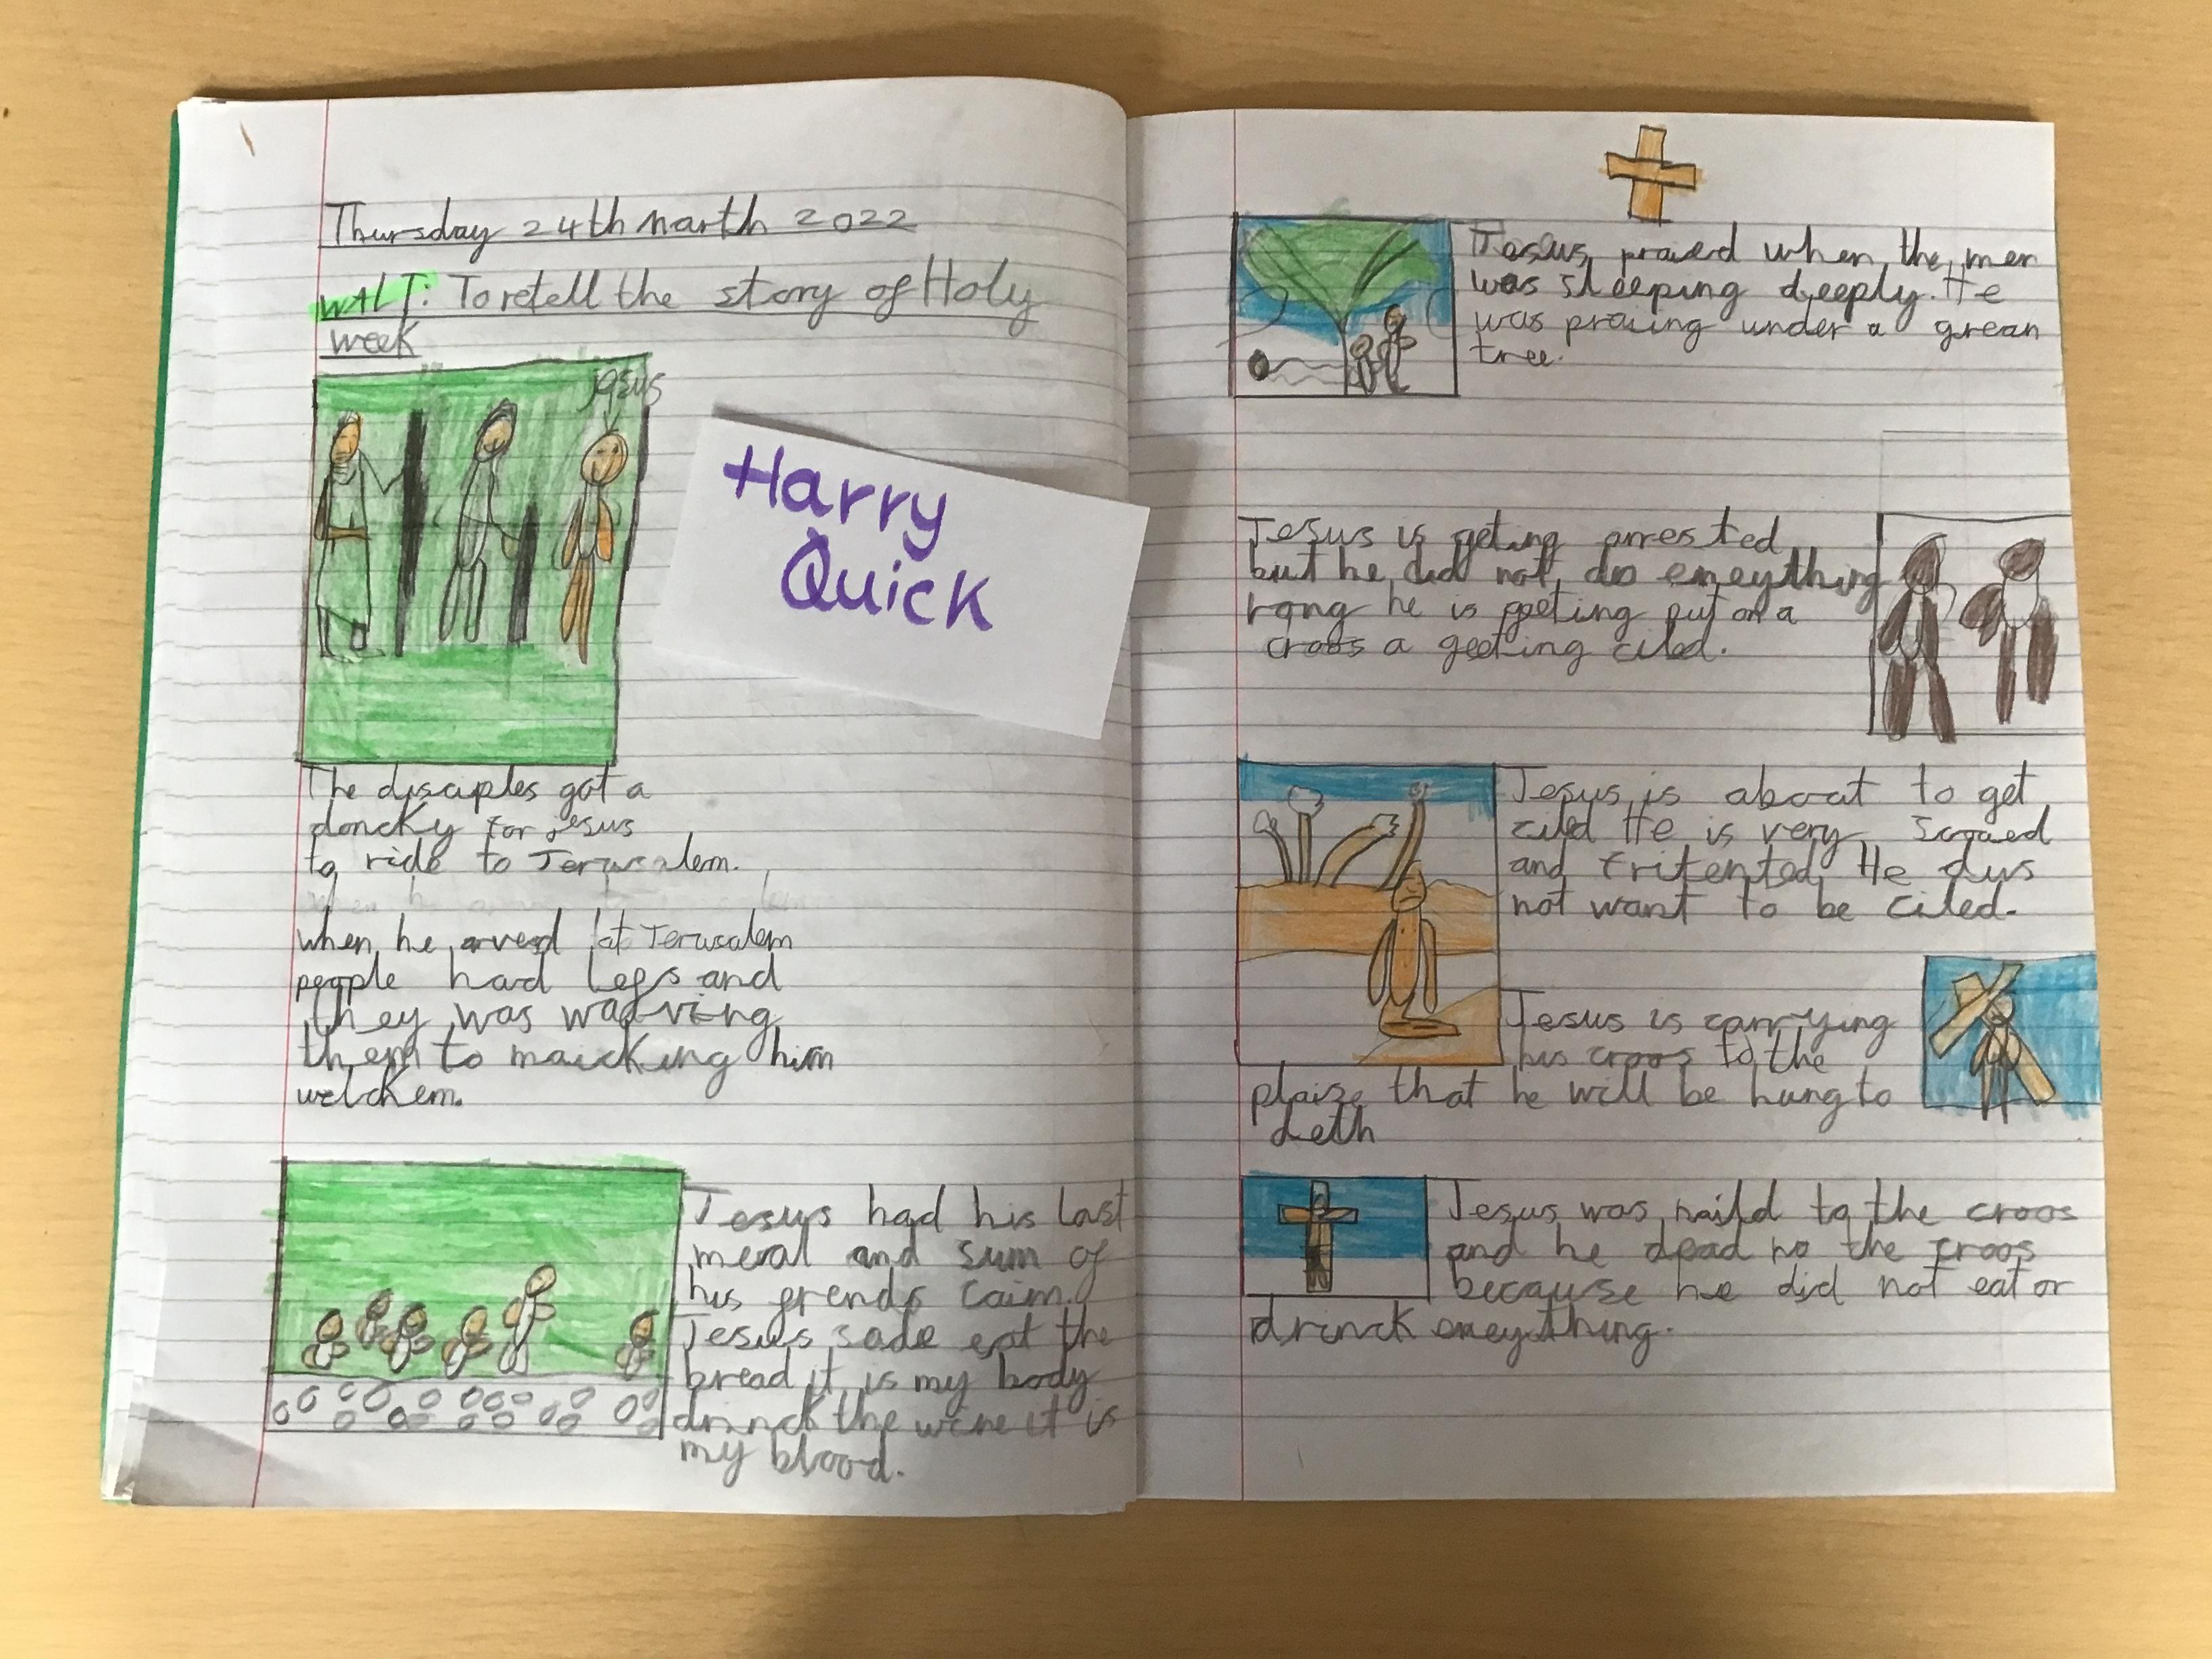 Thursday 24th narth 2022
WALT: To retell the story of Holy
week
jesus
Harry
Quick
The disciples got a
doncky for jesus
to ride to Jerusalem.
when he arved at Jerusalem
people had lefs and
they was waving
them to maicking him
welckem.
Jesus had his last
meal and sum of
his frends caim.
Jesus sade eat the
bread it is my body
drinck the wine it is
my blood.
Jesus praied when the men
was sleeping deeply. He
was praing under a grean
tree.
Jesus is geting arrested
but he did not do eneything
rong he is geeting put on a
croos a geeting ciled.
Jesus is about to get
ciled He is very scared
and fritented He dus
not want to be ciled.
Jesus is carrying
his croos to the
plaise that he will be hung to
deth
Jesus was naild to the croos
and he dead no the croos
because he did not eat or
drinck eneything.